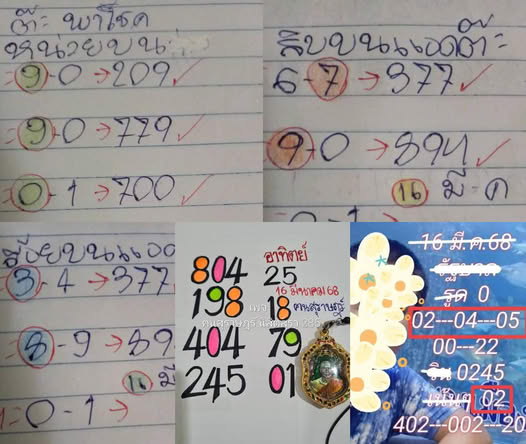 ต๊ะ พาโชค
หน่วยบน
= 9-0 → 209 ✓
= 9-0 → 779 ✓
= 0-1 → 700 ✓
สิบบนแอดต๊ะ
6-7 → 377 ✓
9-0 → 894 ✓
16 มี-ค
0-1 →
ร้อยบนแอด
3-4 → 377
8-9 → 89
16 มี
= 0-1 →
อาทิตย์
804 25
16 มีนาคม 68
198 18 ฅนสุราษฎร์
เพจ
404 79
245 01
16 มี.ค.68
รัฐบาล
รูด 0
02---04---05
00---22
วิน 0245
เน้นๆ 02
402---002---20